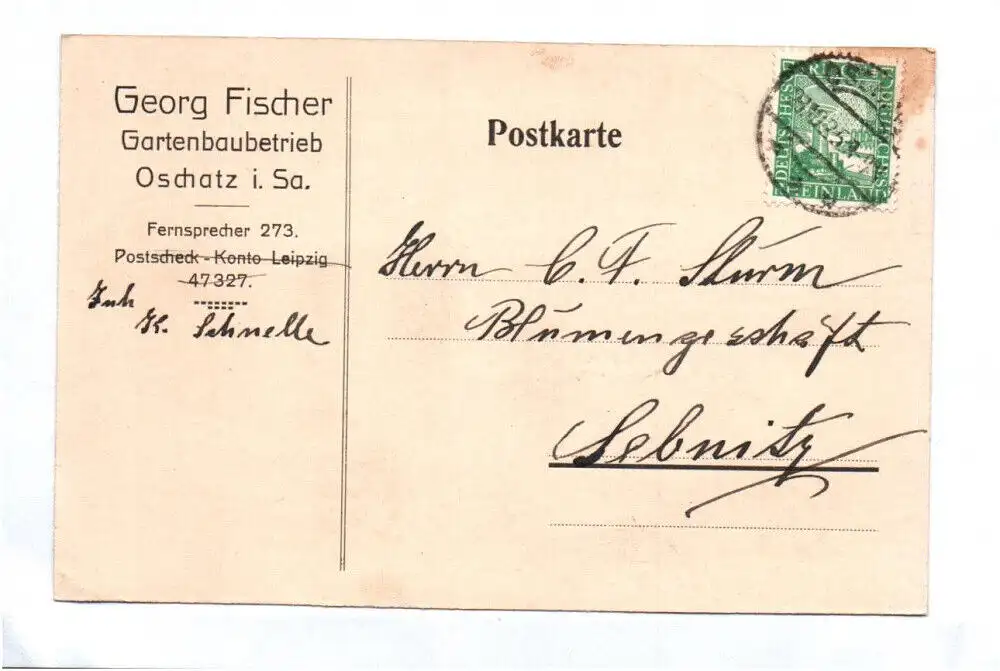 Georg Fischer
Gartenbaubetrieb
Oschatz i. Sa.
Fernsprecher 273.
Postscheck-Konto Leipzig
47327.
Inh
K. Schnelle
Postkarte
DEUTSCHES REICH
RHEINLAND
Herrn C. F. Sturm
Blumengeschäft
Sebnitz